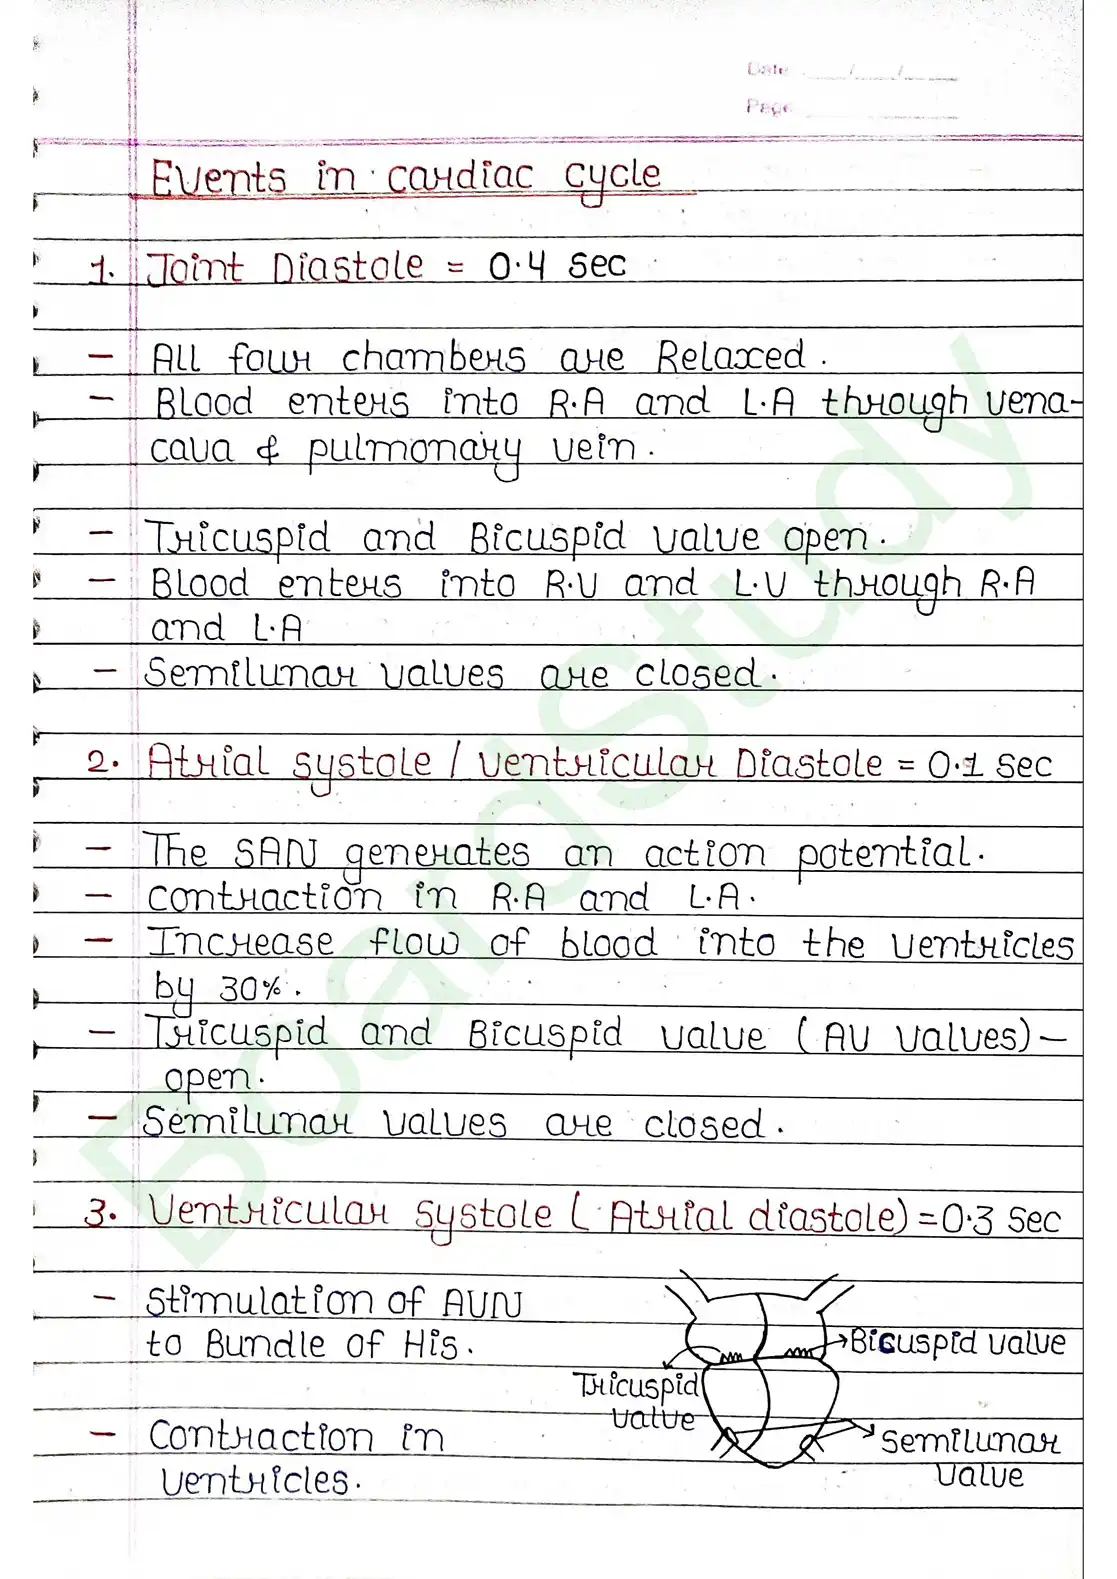 Date ___/___/___
Page
Events in cardiac cycle
1. Joint Diastole = 0.4 sec
- All four chambers are Relaxed.
- Blood enters into R.A and L.A through vena-
cava & pulmonary vein.
- Tricuspid and Bicuspid valve open.
- Blood enters into R.V and L.V through R.A
and L.A
- Semilunar valves are closed.
2. Atrial systole / ventricular Diastole = 0.1 sec
- The SAN generates an action potential.
- contraction in R.A and L.A.
- Increase flow of blood into the ventricles
by 30%.
- Tricuspid and Bicuspid valve (AV valves) -
open.
- Semilunar valves are closed.
3. Ventricular systole (Atrial diastole) = 0.3 sec
- Stimulation of AVN
to Bundle of His.
Bicuspid valve
Tricuspid
valve
- Contraction in
ventricles.
Semilunar
valve
BoardStudy